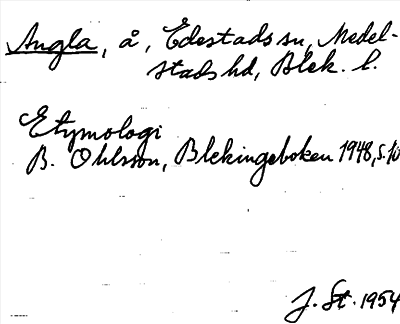 Angla, å, Edestads sn, Medel-
stads hd, Blek. l.
Etymologi
B. Ohlsson, Blekingeboken 1948, s. 10
J. St. 1954